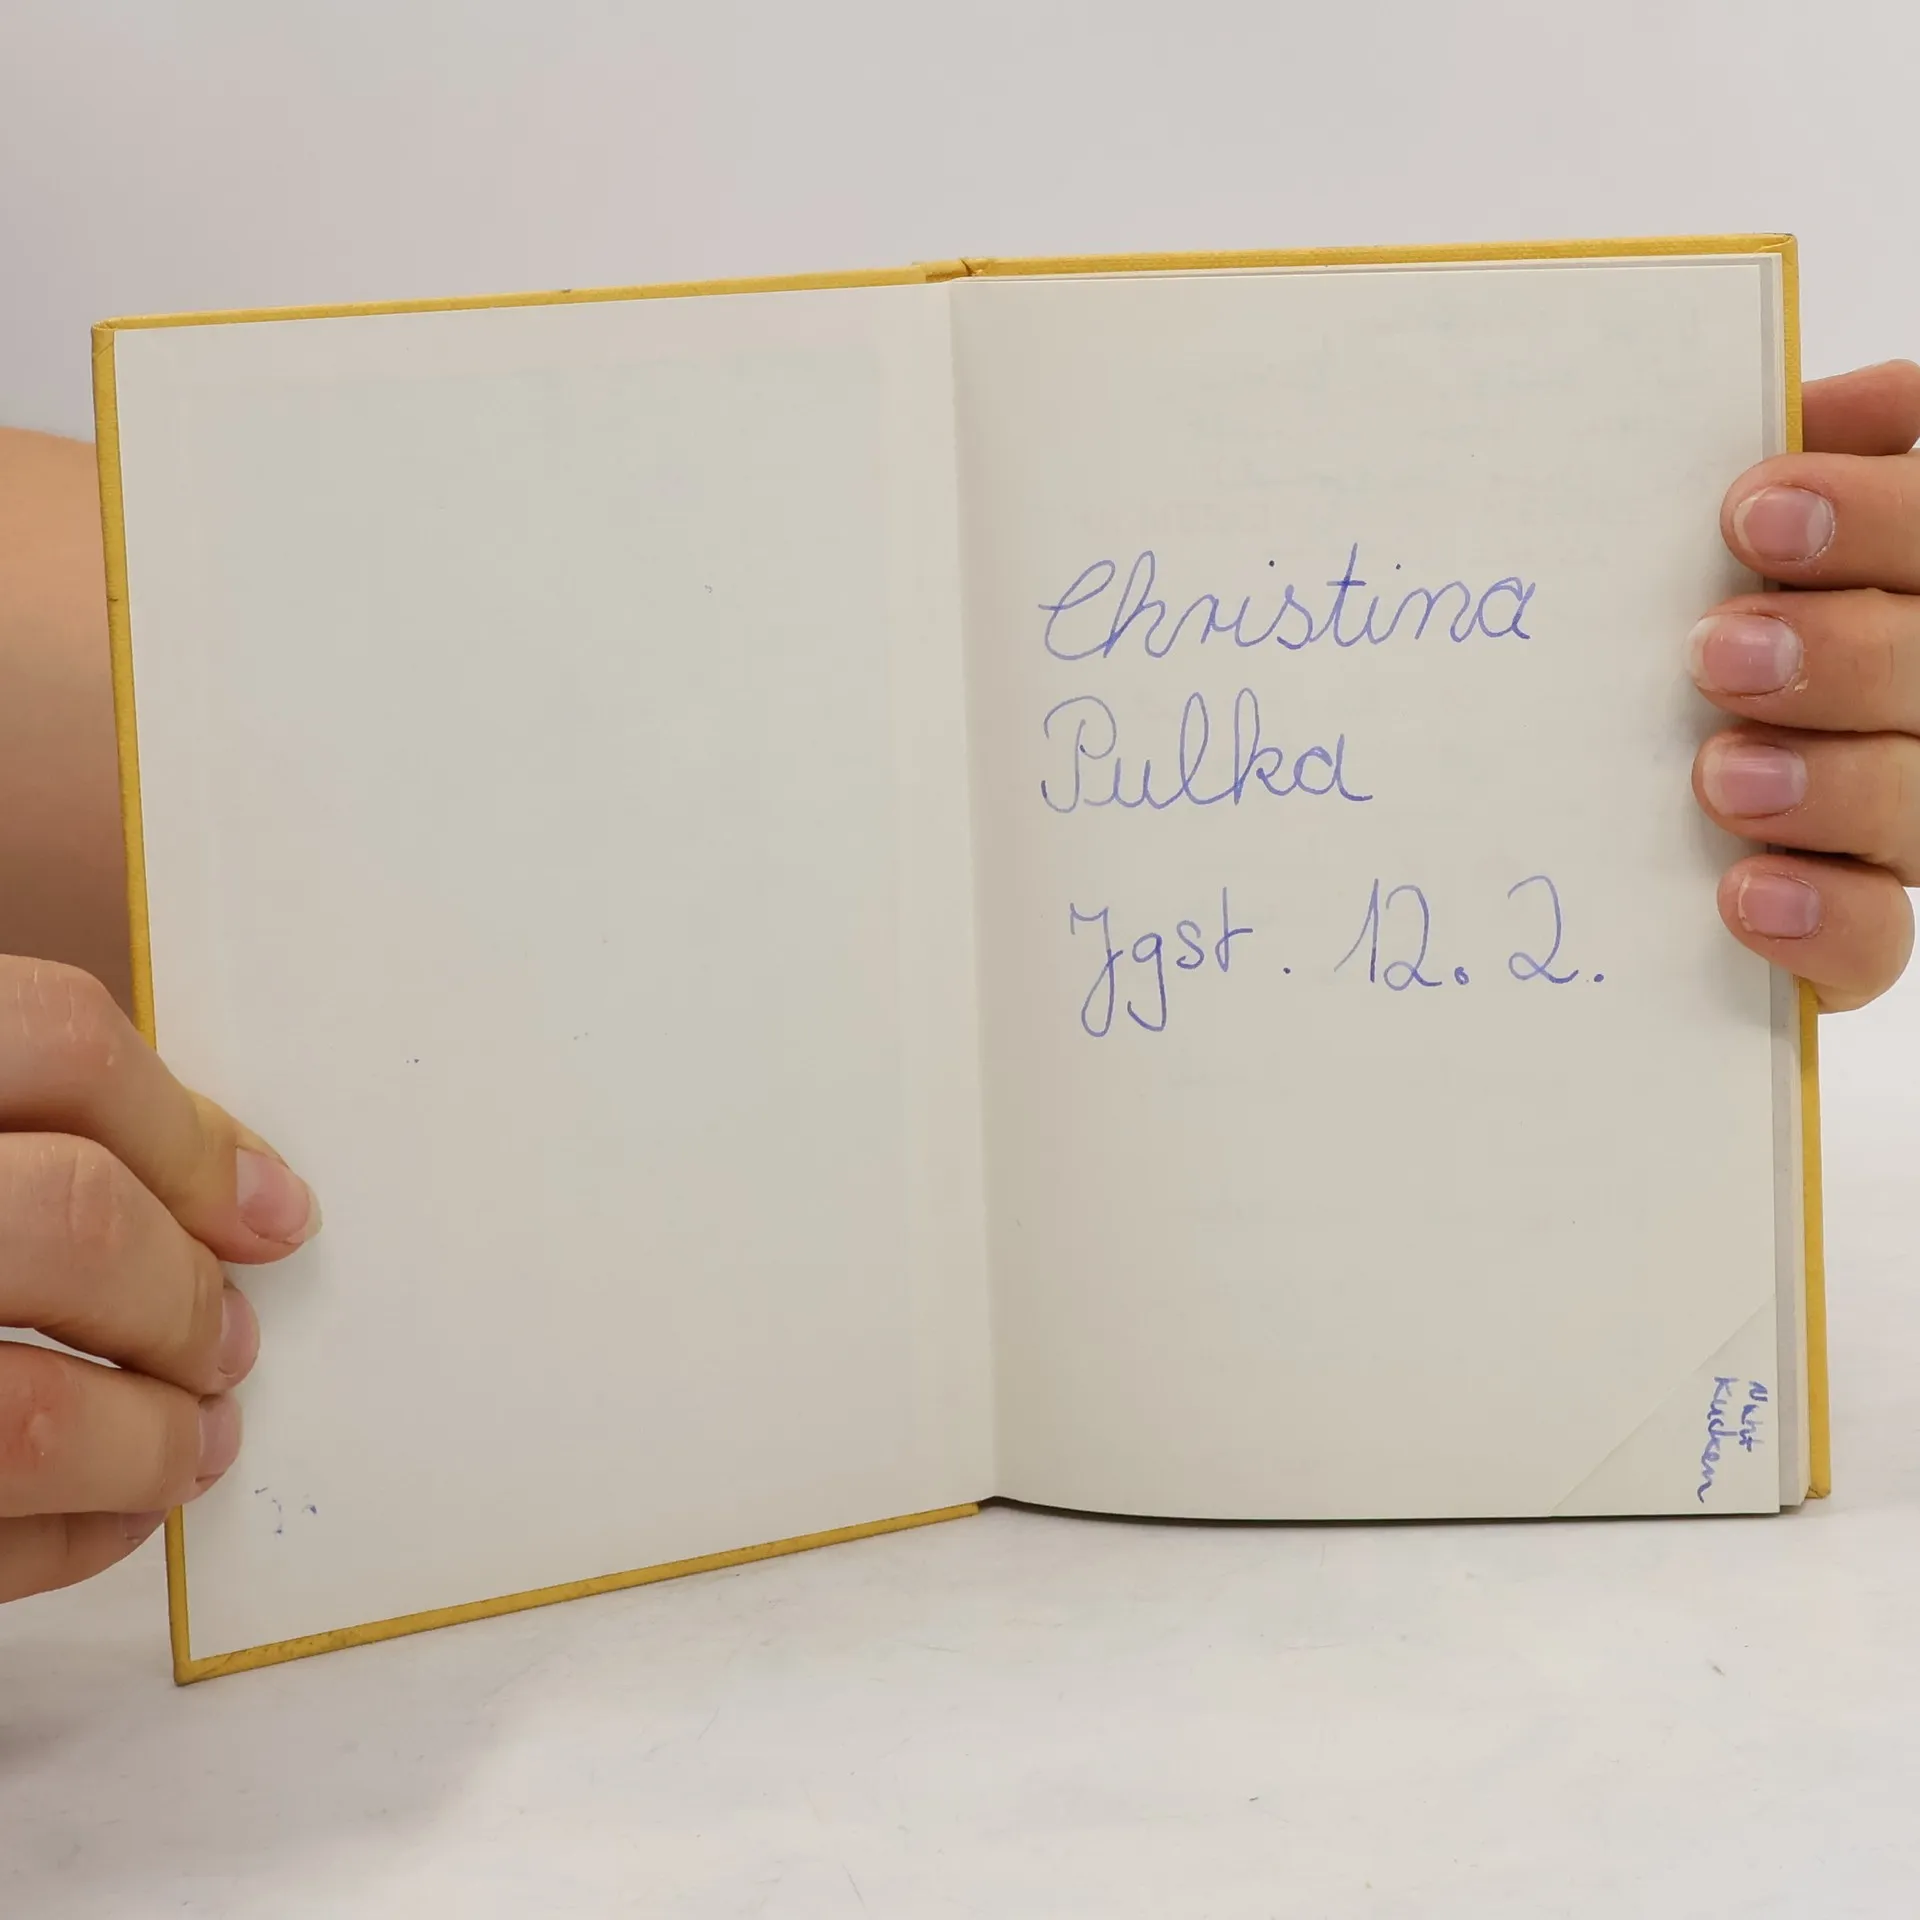 Christina
Pulka
Jgst. 12. 2.
Nicht
Kucken